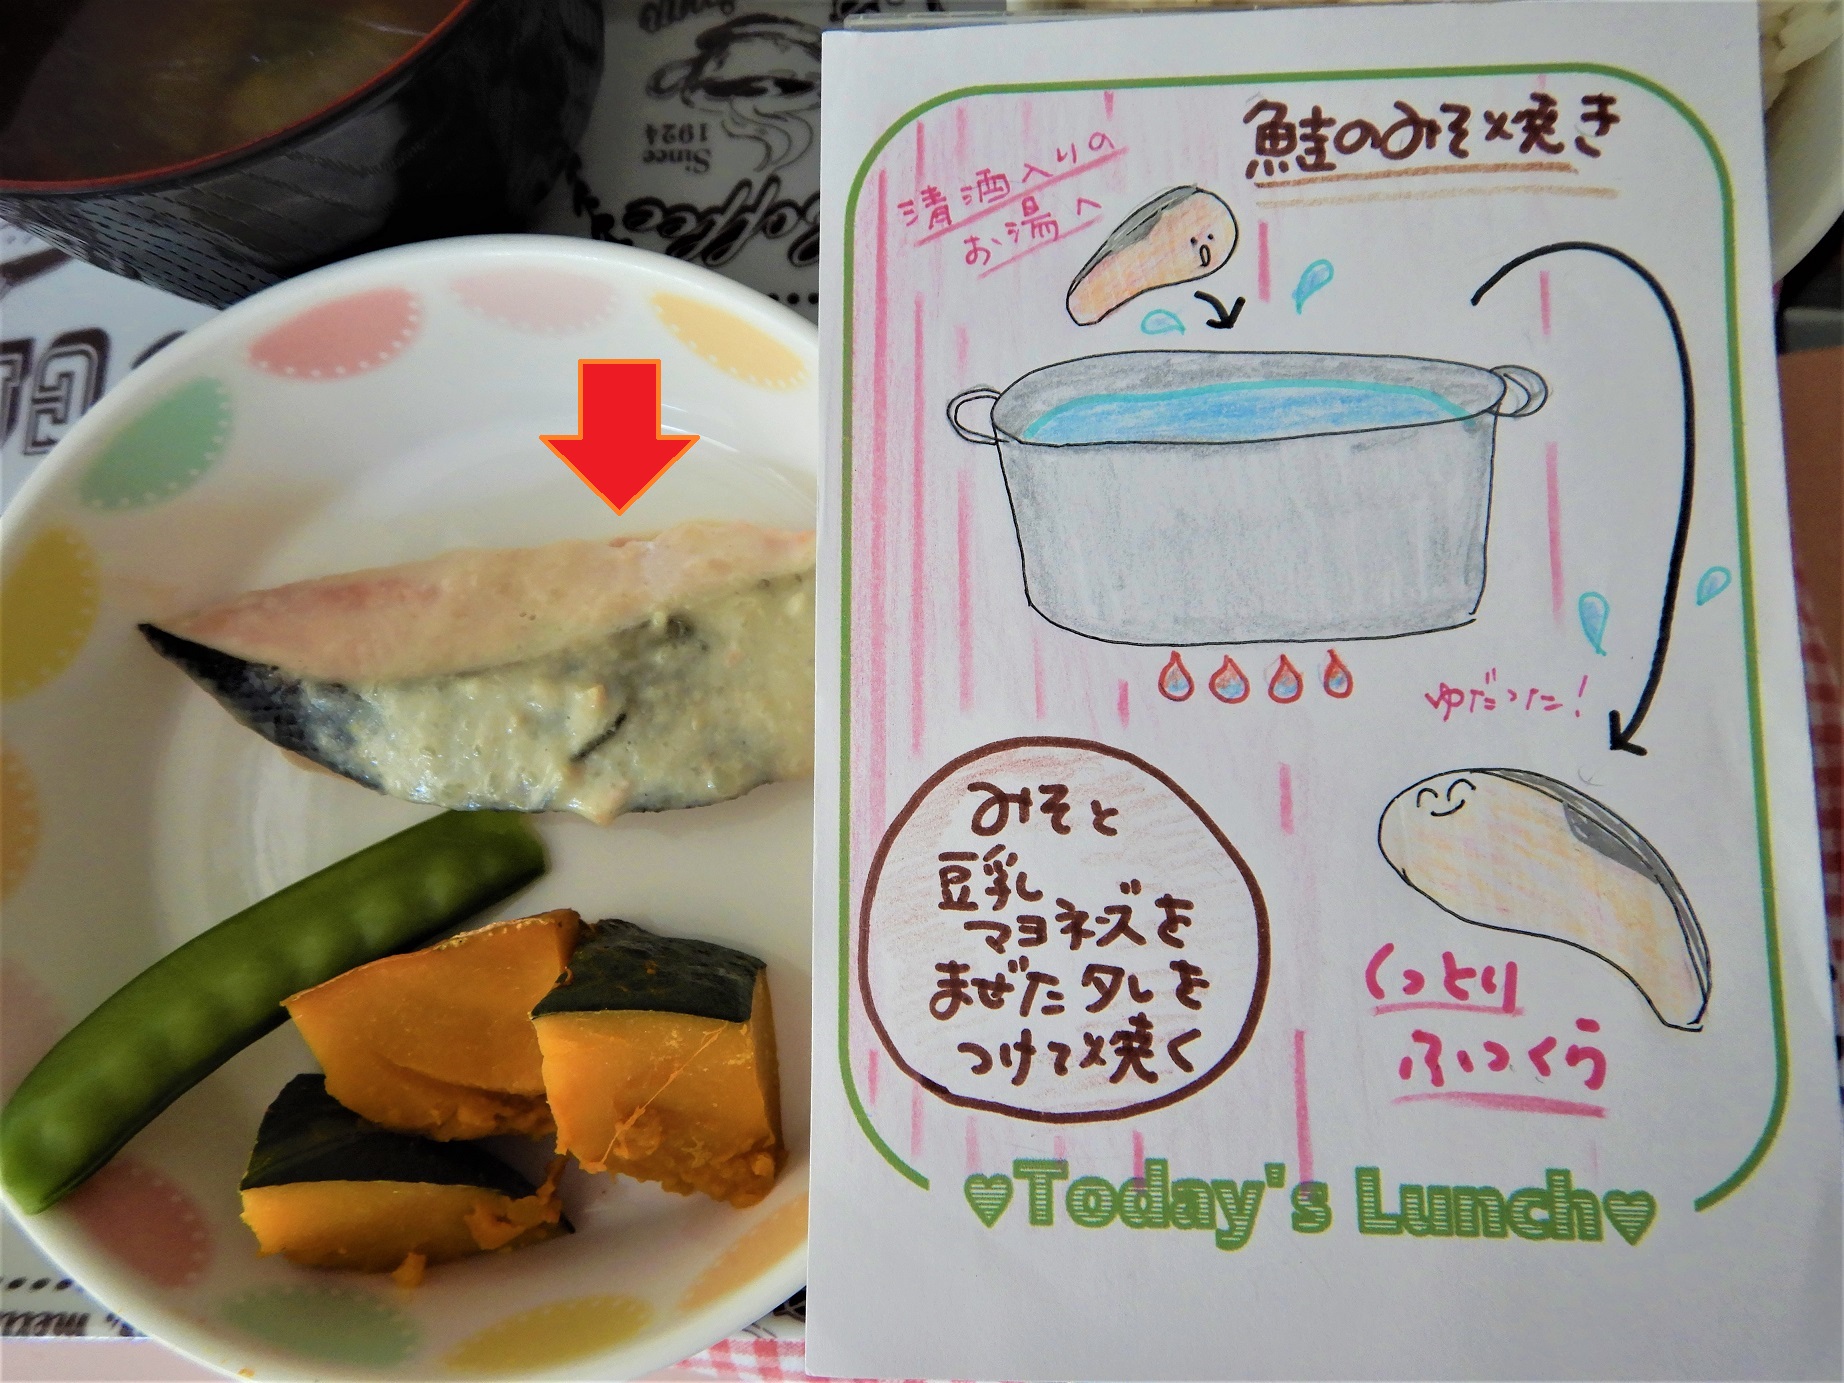 鮭のみそ焼き
清酒入りの
お湯へ
ゆだった!
みそと
豆乳
マヨネーズを
まぜたタレを
つけて焼く
しっとり
ふっくら
♥Today's Lunch♥
Since
1924
Coffee